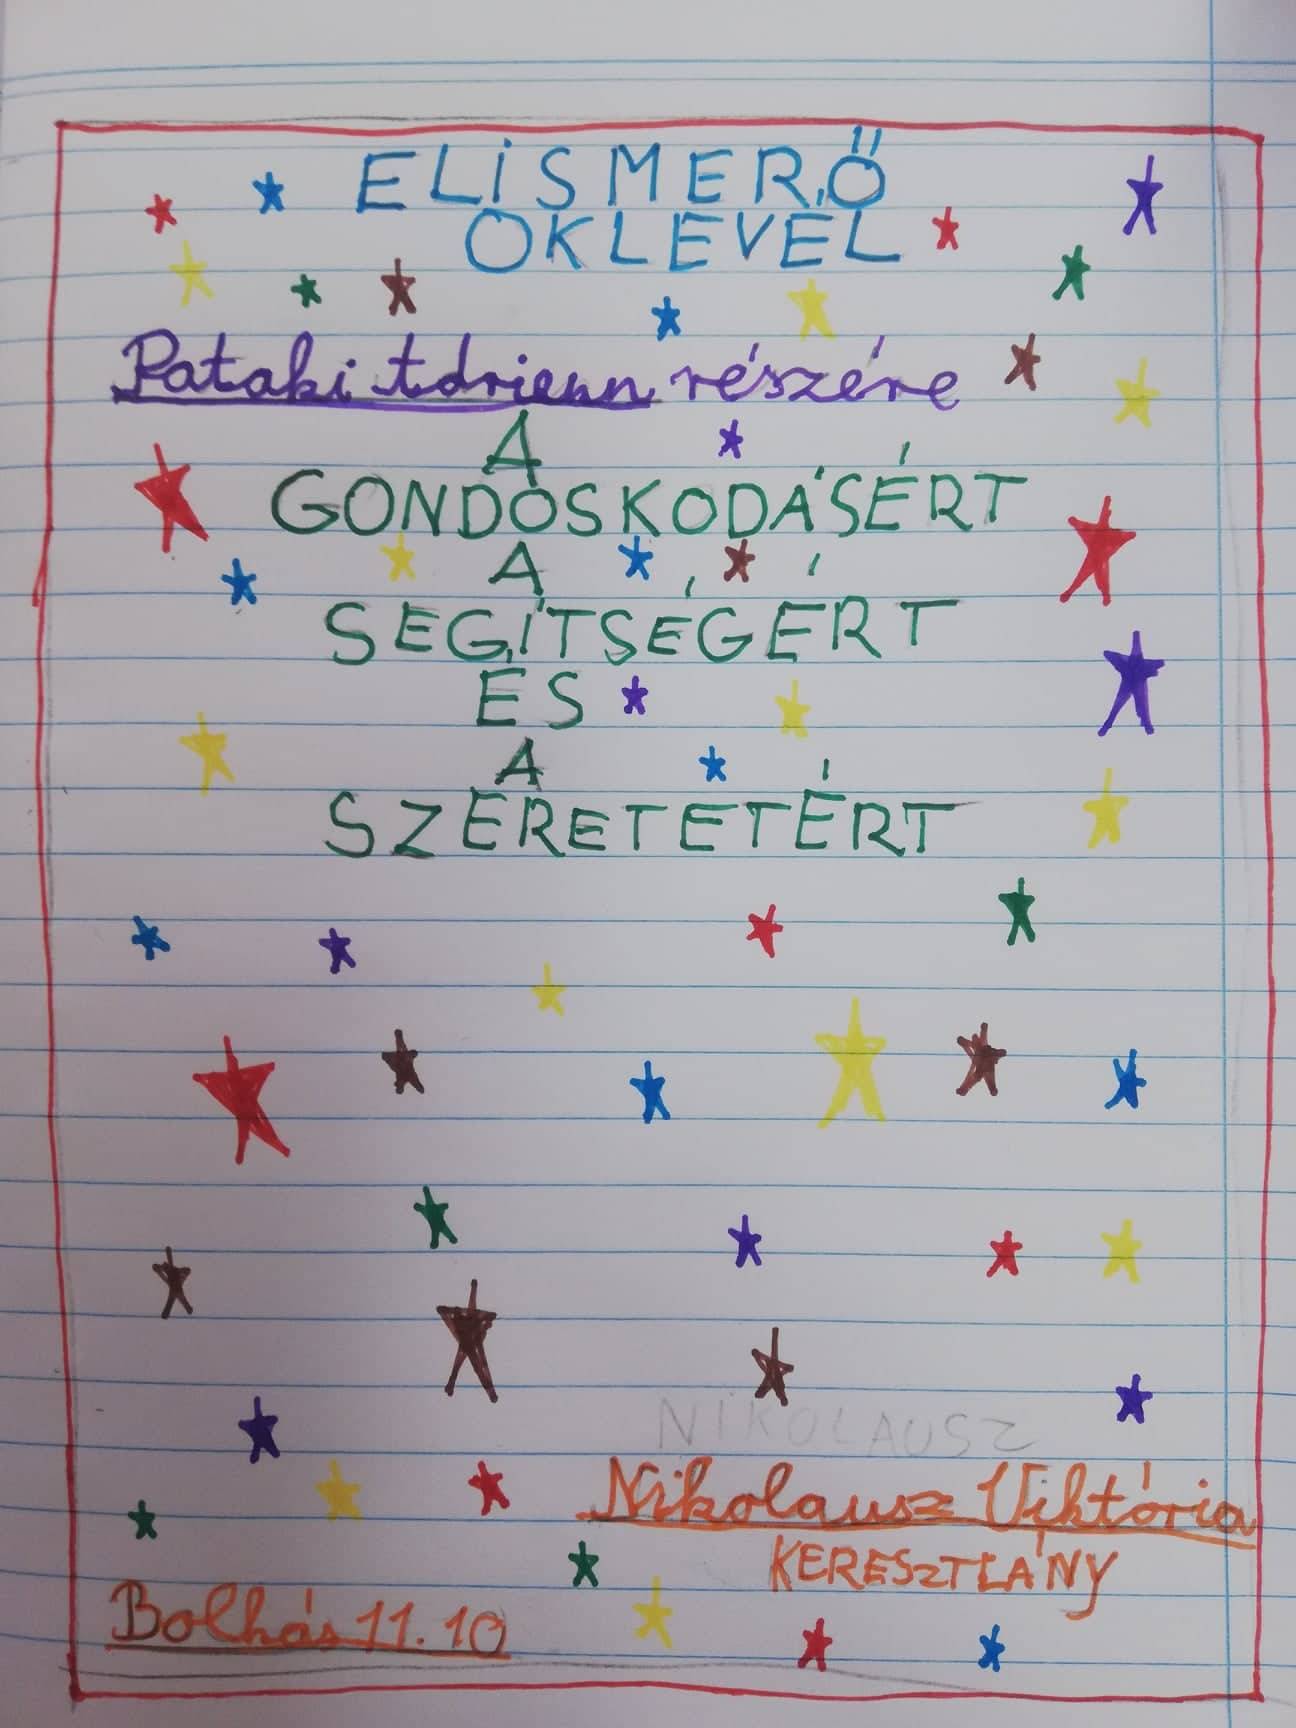 ELISMERŐ
OKLEVÉL
Pataki Adrienn részére
A
GONDOSKODÁSÉRT
A
SEGÍTSÉGÉRT
ÉS
A
SZERETETÉRT
NIKOLAUSZ
Nikolausz Viktória
KERESZTLÁNY
Bolhás 11.10